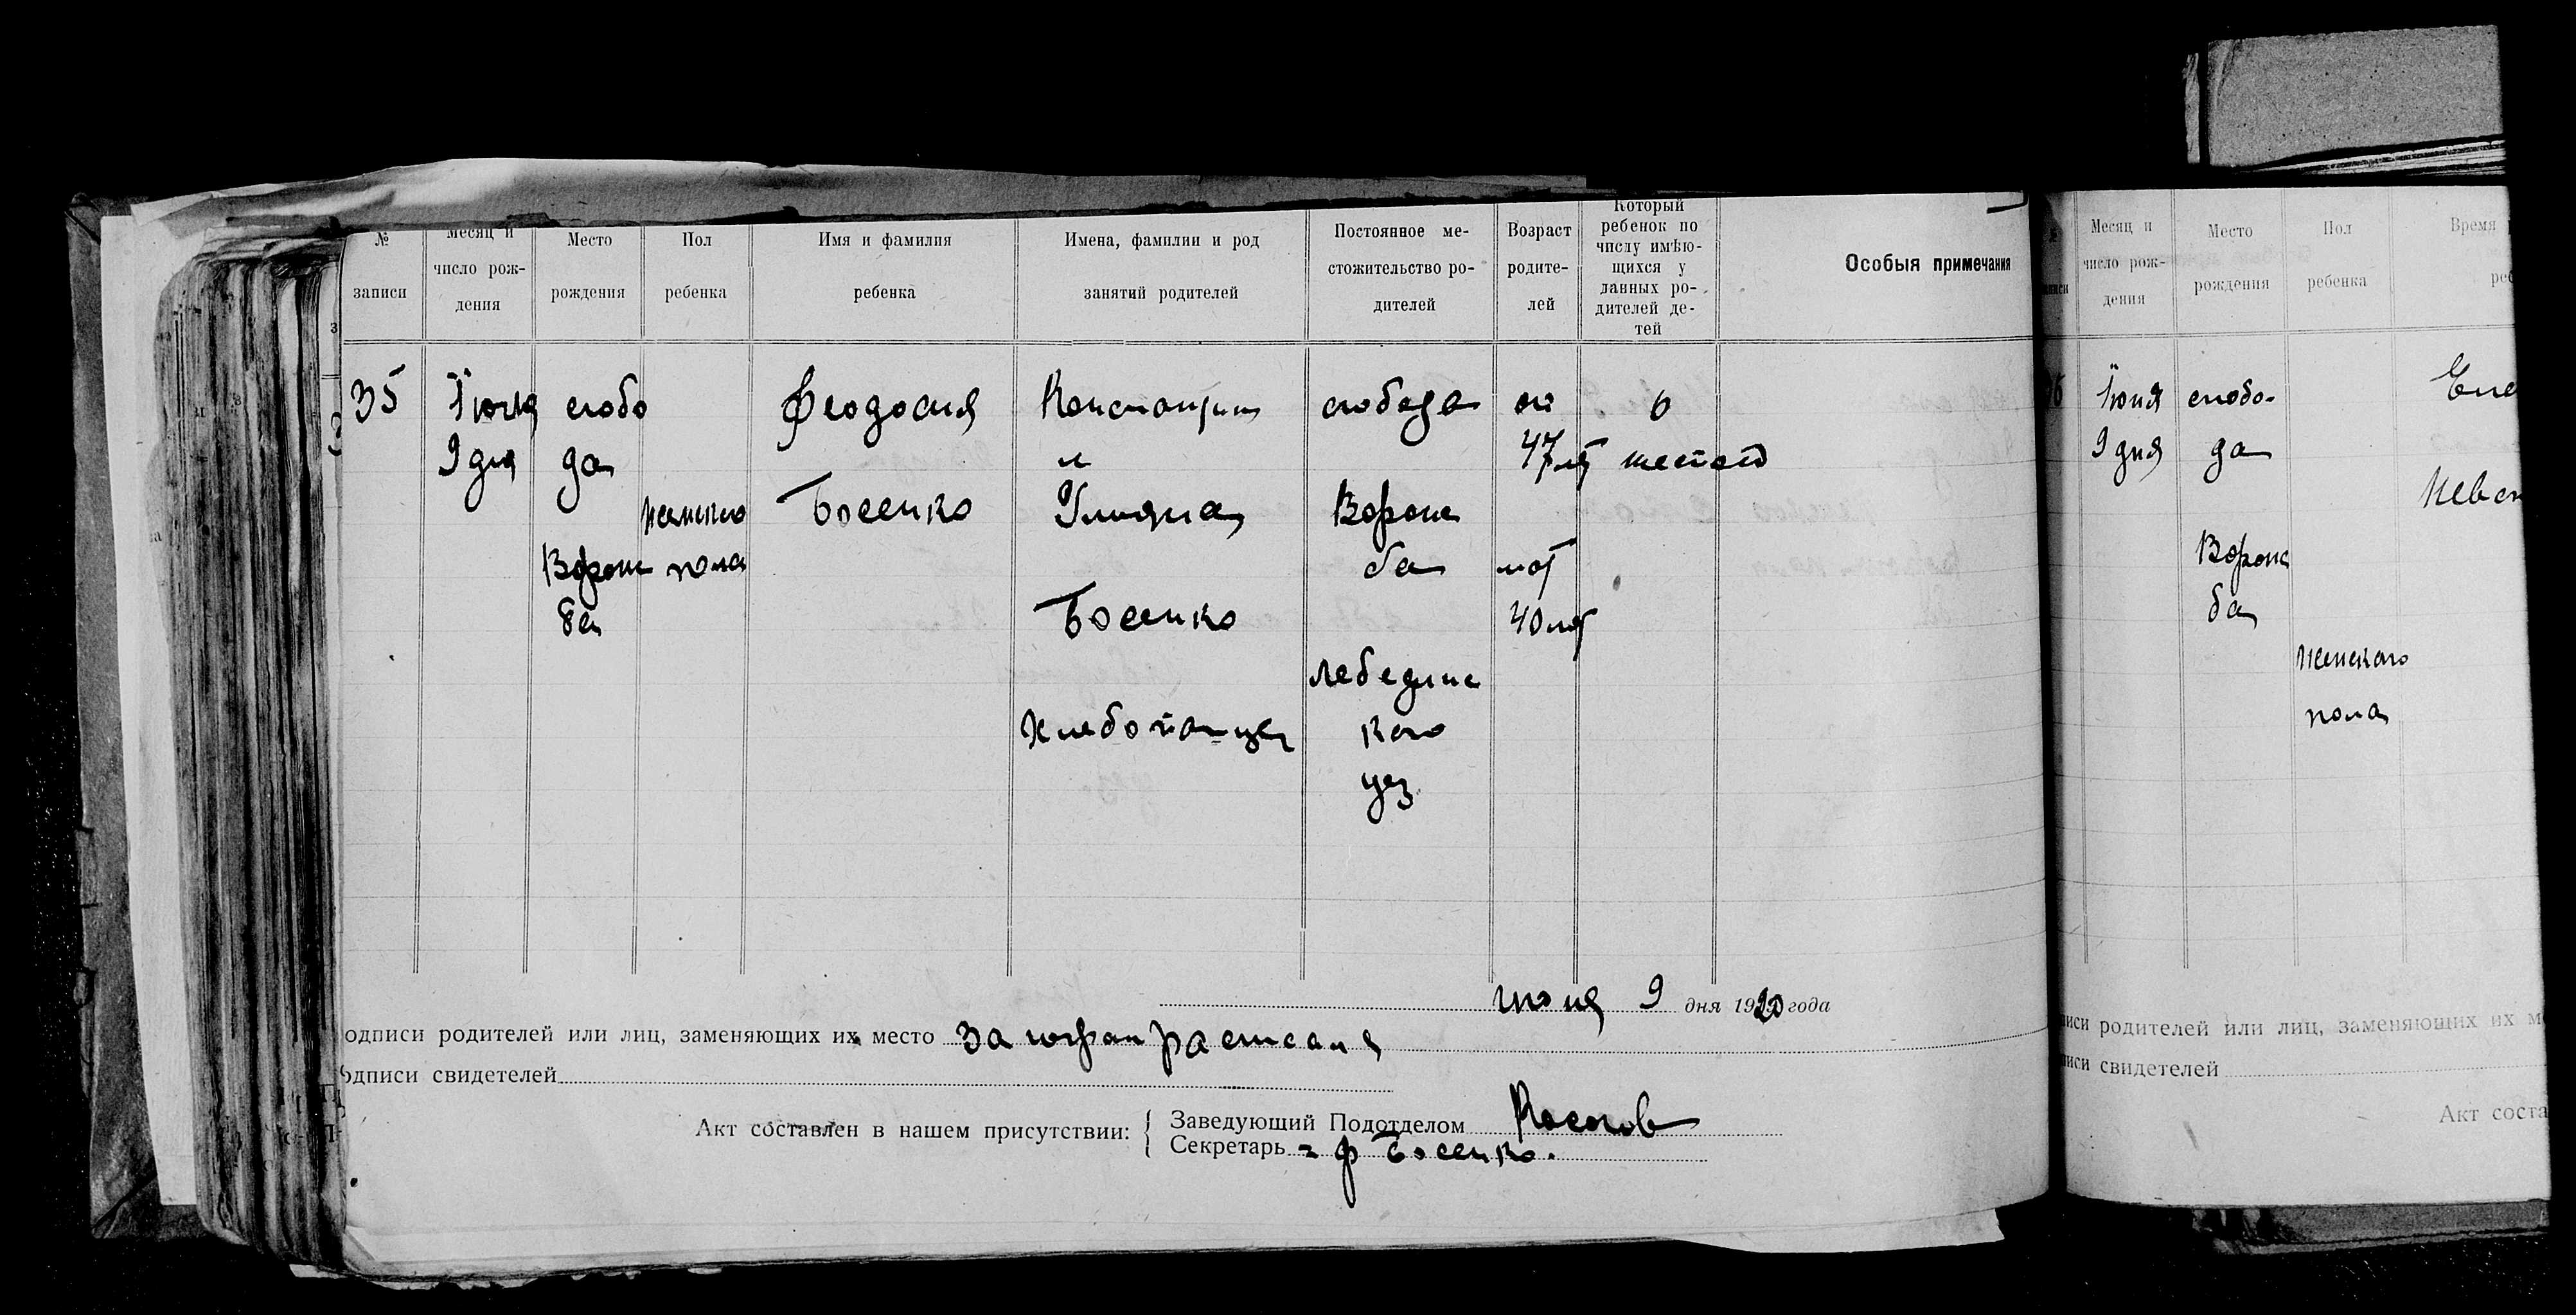 № записи
Месяц и число рождения
Место рождения
Пол ребенка
Имя и фамилия ребенка
Имена, фамилии и род занятий родителей
Постоянное местожительство родителей
Возраст родителей
Который ребенок по числу имѣющихся у данных родителей детей
Особыя примечания
35
Июня
9 дня
слобо
да
Ворож
ба
женского
пола
Феодосия
Босенко
Константин
и
Улияна
Босенко
Хлебопашец
слобода
Ворож
ба
Лебединс
кого
уез
от
47 лет
мат
40 лет
6
шестой
июня 9 дня 1920 года
одписи родителей или лиц, заменяющих их место
одписи свидетелей
Акт составлен в нашем присутствии:
Заведующий Подотделом
Секретарь = Ф Босенко.
Месяц и число рождения
Место рождения
Пол ребенка
Время
Июня
9 дня
слобо-
да
Ворож
ба
женского
пола
писи родителей или лиц, заменяющих их м
писи свидетелей
Акт соста